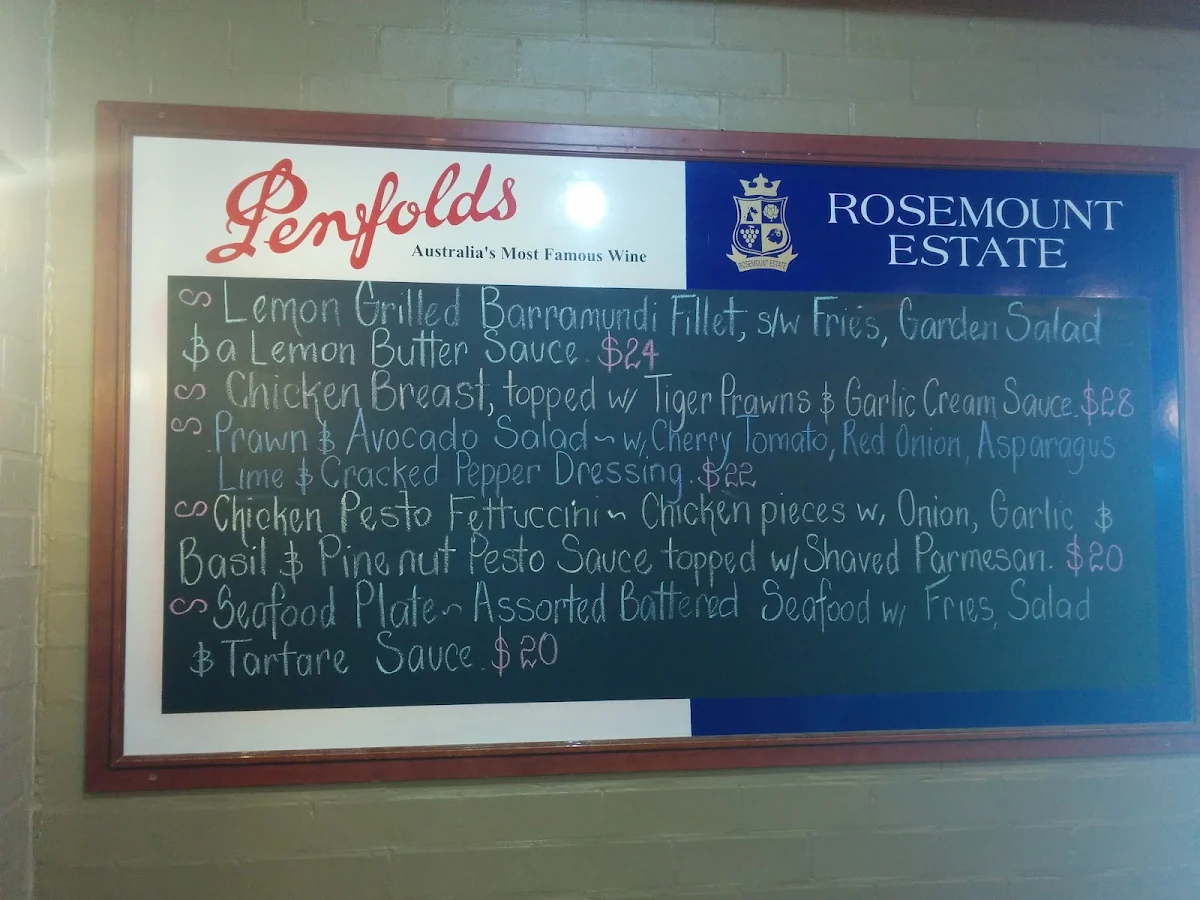 Penfolds
Australia's Most Famous Wine
ROSEMOUNT
ESTATE
ROSEMOUNT ESTATE
S Lemon Grilled Barramundi Fillet, s/w Fries, Garden Salad
& a Lemon Butter Sauce. $24
S Chicken Breast, topped w/ Tiger Prawns & Garlic Cream Sauce. $28
S Prawn & Avocado Salad ~ w/ Cherry Tomato, Red Onion, Asparagus
Lime & Cracked Pepper Dressing. $22
S Chicken Pesto Fettuccini ~ Chicken pieces w, Onion, Garlic &
Basil & Pine nut Pesto Sauce topped w/ Shaved Parmesan. $20
S Seafood Plate ~ Assorted Battered Seafood w/ Fries, Salad
& Tartare Sauce. $20